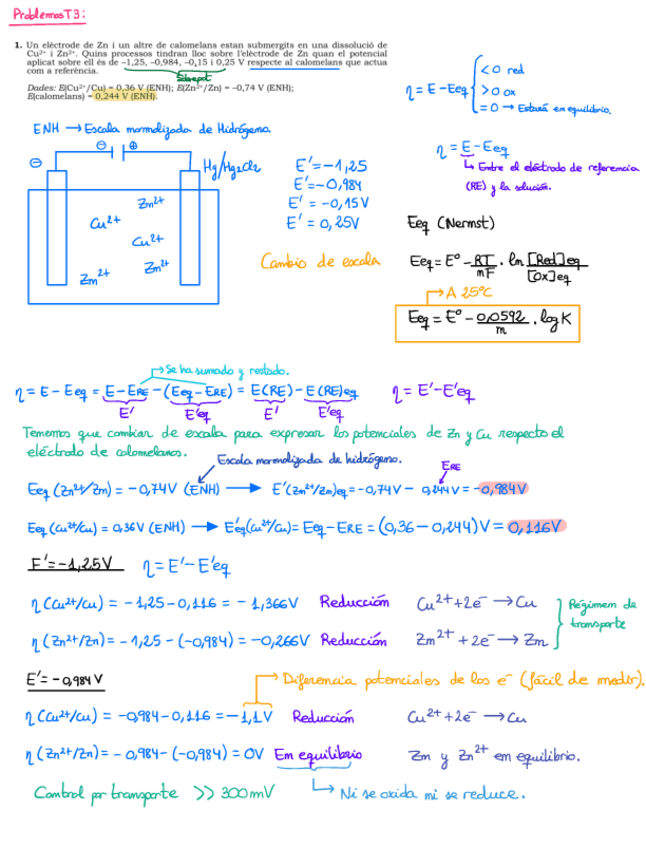 Problemas T3:
1. Un elèctrode de Zn i un altre de calomelans estan submergits en una dissolució de
Cu²⁺ i Zn²⁺. Quins processos tindran lloc sobre l'elèctrode de Zn quan el potencial
aplicat sobre ell és de −1,25, −0,984, −0,15 i 0,25 V respecte al calomelans que actua
com a referència.
Sobrepot
Dades: E(Cu²⁺/Cu) = 0,36 V (ENH); E(Zn²⁺/Zn) = −0,74 V (ENH);
E(calomelans) = 0,244 V (ENH).
η = E - Eeq { < 0 red
> 0 ox
= 0 → Estará en equilibrio.
ENH → Escala normalizada de Hidrógeno.
⊖ ⊕
⊖ Hg/Hg2Cl2
Zn2+
Cu2+
Cu2+
Zn2+ Zn2+
E' = -1,25
E' = -0,984
E' = -0,15V
E' = 0,25V
Cambio de escala
η = E - Eeq
↳ Entre el eléctrodo de referencia
(RE) y la solución.
Eeq (Nernst)
Eeq = E° - RT/nF · ln [Red]eq/[Ox]eq
→ A 25°C
Eeq = E° - 0,0592/n · log K
→ Se ha sumado y restado.
η = E - Eeq = E - ERE - (Eeq - ERE) = E(RE) - E(RE)eq η = E' - E'eq
E' E'eq E' E'eq
Tenemos que cambiar de escala para expresar los potenciales de Zn y Cu respecto el
eléctrodo de calomelanos.
Escala normalizada de hidrógeno.
ERE
Eeq (Zn2+/Zn) = -0,74V (ENH) → E'(Zn2+/Zn)eq = -0,74V - 0,244V = -0,984V
Eeq (Cu2+/Cu) = 0,36V (ENH) → E'eq (Cu2+/Cu) = Eeq - ERE = (0,36 - 0,244)V = 0,116V
E' = -1,25V η = E' - E'eq
η (Cu2+/Cu) = -1,25 - 0,116 = -1,366V Reducción Cu2+ + 2e- → Cu
Régimen de
transporte
η (Zn2+/Zn) = -1,25 - (-0,984) = -0,266V Reducción Zn2+ + 2e- → Zn
E' = -0,984V
→ Diferencia potenciales de los e- (fácil de medir).
η (Cu2+/Cu) = -0,984 - 0,116 = -1,1V Reducción Cu2+ + 2e- → Cu
η (Zn2+/Zn) = -0,984 - (-0,984) = 0V En equilibrio Zn y Zn2+ en equilibrio.
Control por transporte >> 300mV ↳ Ni se oxida ni se reduce.